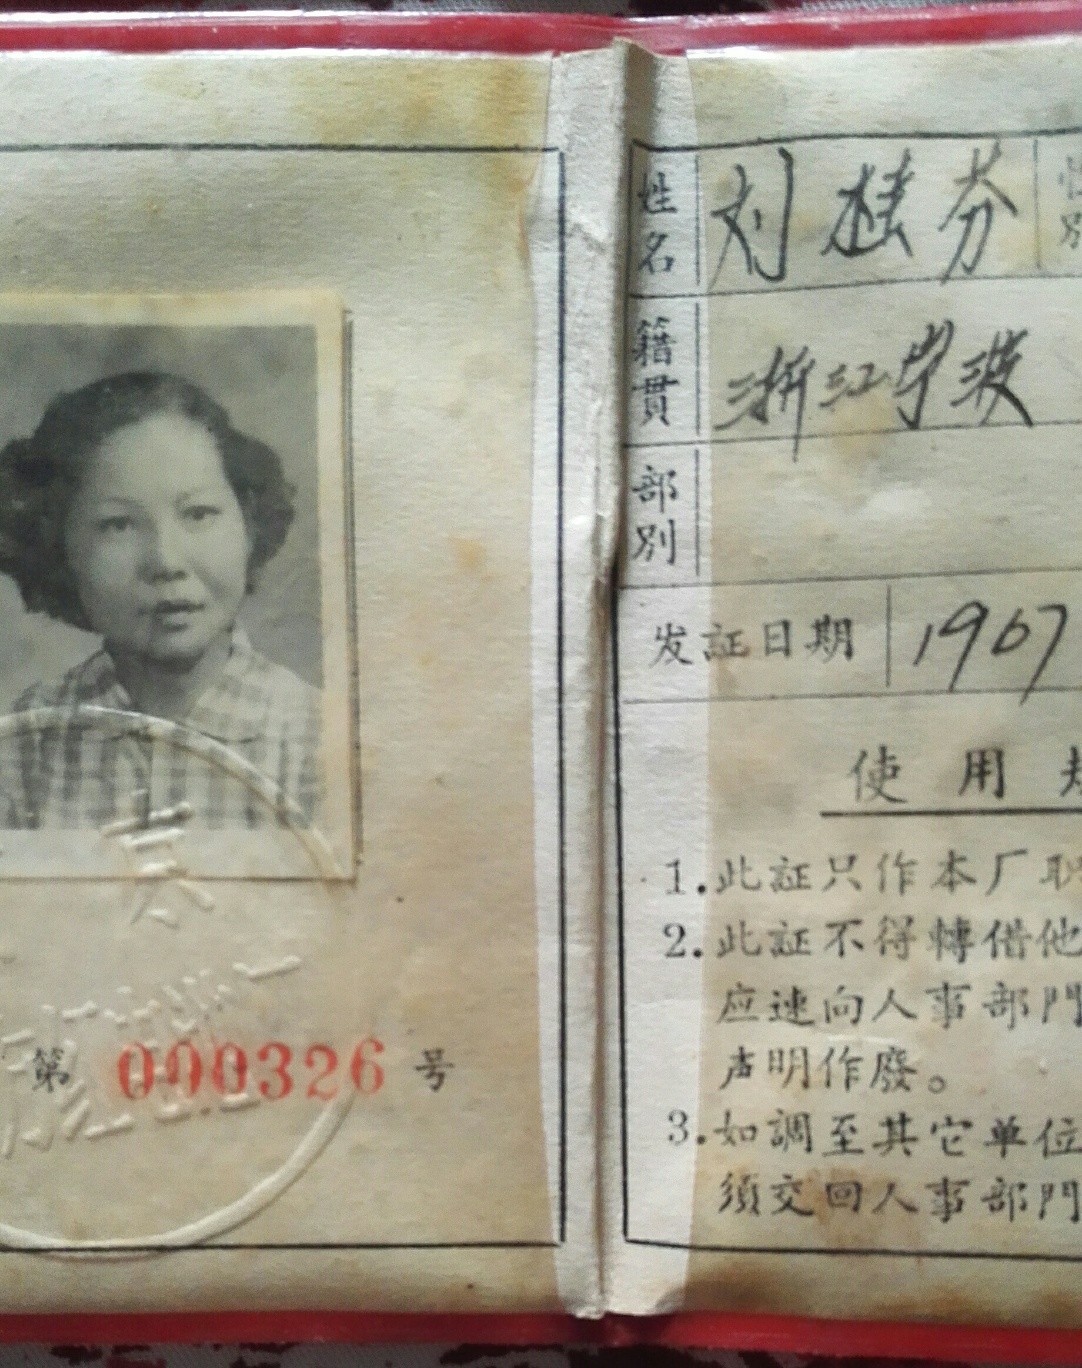 第 000326 号
姓名 刘桂芬 性别
籍貫 浙江宁波
部別
发証日期 1967
使用
1.此証只作本厂职
2.此証不得轉借他
应速向人事部門
声明作廢。
3.如調至其它单位
須交回人事部門